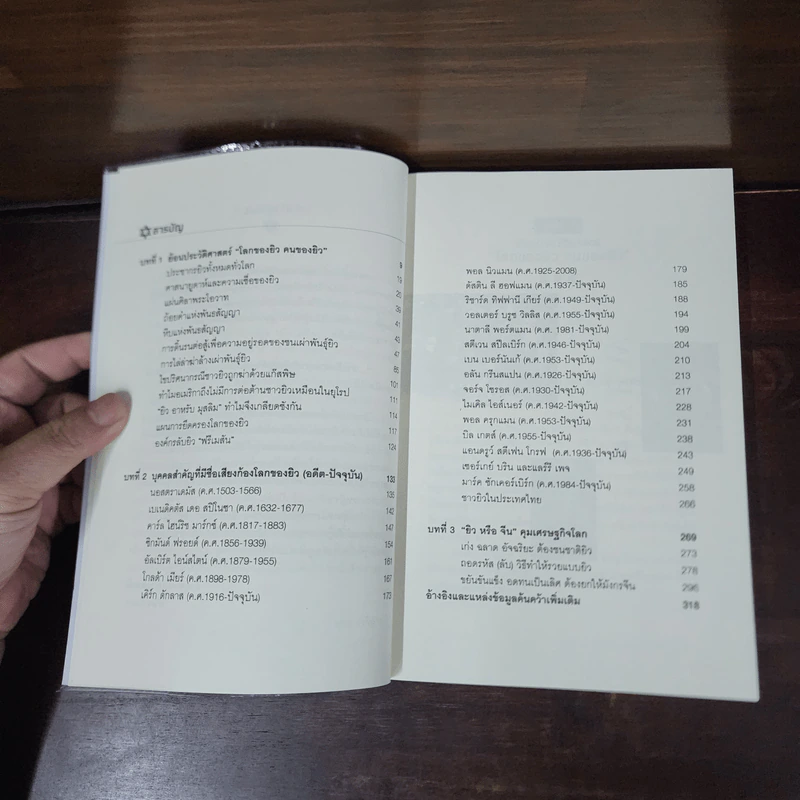 สารบัญ
บทที่ 1 ย้อนประวัติศาสตร์ "โลกของยิว คนของยิว" 9
ประชากรยิวทั้งหมดทั่วโลก 19
ศาสนายูดาห์และความเชื่อของยิว 20
แผ่นศิลาพระโอวาท 39
ถ้อยคำแห่งพันธสัญญา 41
หีบแห่งพันธสัญญา 43
การดิ้นรนต่อสู้เพื่อความอยู่รอดของชนเผ่าพันธุ์ยิว 47
การไล่ล่าฆ่าล้างเผ่าพันธุ์ยิว 85
ไขปริศนากรณีชาวยิวถูกฆ่าด้วยแก๊สพิษ 101
ทำไมอเมริกาถึงไม่มีการต่อต้านชาวยิวเหมือนในยุโรป 111
"ยิว อาหรับ มุสลิม" ทำไมจึงเกลียดชังกัน 114
แผนการยึดครองโลกของยิว 117
องค์กรลับยิว "ฟรีเมสัน" 124
บทที่ 2 บุคคลสำคัญที่มีชื่อเสียงก้องโลกของยิว (อดีต-ปัจจุบัน) 133
นอสตราเดมัส (ค.ศ.1503-1566) 135
เบเนดิคตัส เดอ สปิโนซา (ค.ศ.1632-1677) 142
คาร์ล ไฮน์ริช มาร์กซ์ (ค.ศ.1817-1883) 147
ซิกมันด์ ฟรอยด์ (ค.ศ.1856-1939) 154
อัลเบิร์ต ไอน์สไตน์ (ค.ศ.1879-1955) 161
โกลด้า เมียร์ (ค.ศ.1898-1978) 167
เคิร์ก ดักลาส (ค.ศ.1916-ปัจจุบัน) 173
พอล นิวแมน (ค.ศ.1925-2008) 179
ดัสติน ลี ฮอฟแมน (ค.ศ.1937-ปัจจุบัน) 185
ริชาร์ด ทิฟฟานี เกียร์ (ค.ศ.1949-ปัจจุบัน) 188
วอลเตอร์ บรูซ วิลลิส (ค.ศ.1955-ปัจจุบัน) 194
นาตาลี พอร์ตแมน (ค.ศ. 1981-ปัจจุบัน) 199
สตีเวน สปีลเบิร์ก (ค.ศ.1946-ปัจจุบัน) 204
เบน เบอร์นันเก้ (ค.ศ.1953-ปัจจุบัน) 210
อลัน กรีนสแปน (ค.ศ.1926-ปัจจุบัน) 213
จอร์จ โซรอส (ค.ศ.1930-ปัจจุบัน) 217
ไมเคิล ไอส์เนอร์ (ค.ศ.1942-ปัจจุบัน) 228
พอล ครุกแมน (ค.ศ.1953-ปัจจุบัน) 231
บิล เกตส์ (ค.ศ.1955-ปัจจุบัน) 238
แอนดรูว์ สตีเฟน โกรฟ (ค.ศ.1936-ปัจจุบัน) 243
เซอร์เกย์ บริน และแลร์รี เพจ 249
มาร์ค ซักเคอร์เบิร์ก (ค.ศ.1984-ปัจจุบัน) 258
ชาวยิวในประเทศไทย 266
บทที่ 3 "ยิว หรือ จีน" คุมเศรษฐกิจโลก 269
เก่ง ฉลาด อัจฉริยะ ต้องชนชาติยิว 273
ถอดรหัส (ลับ) วิธีทำให้รวยแบบยิว 278
ขยันขันแข็ง อดทนเป็นเลิศ ต้องยกให้มังกรจีน 296
อ้างอิงและแหล่งข้อมูลค้นคว้าเพิ่มเติม 318